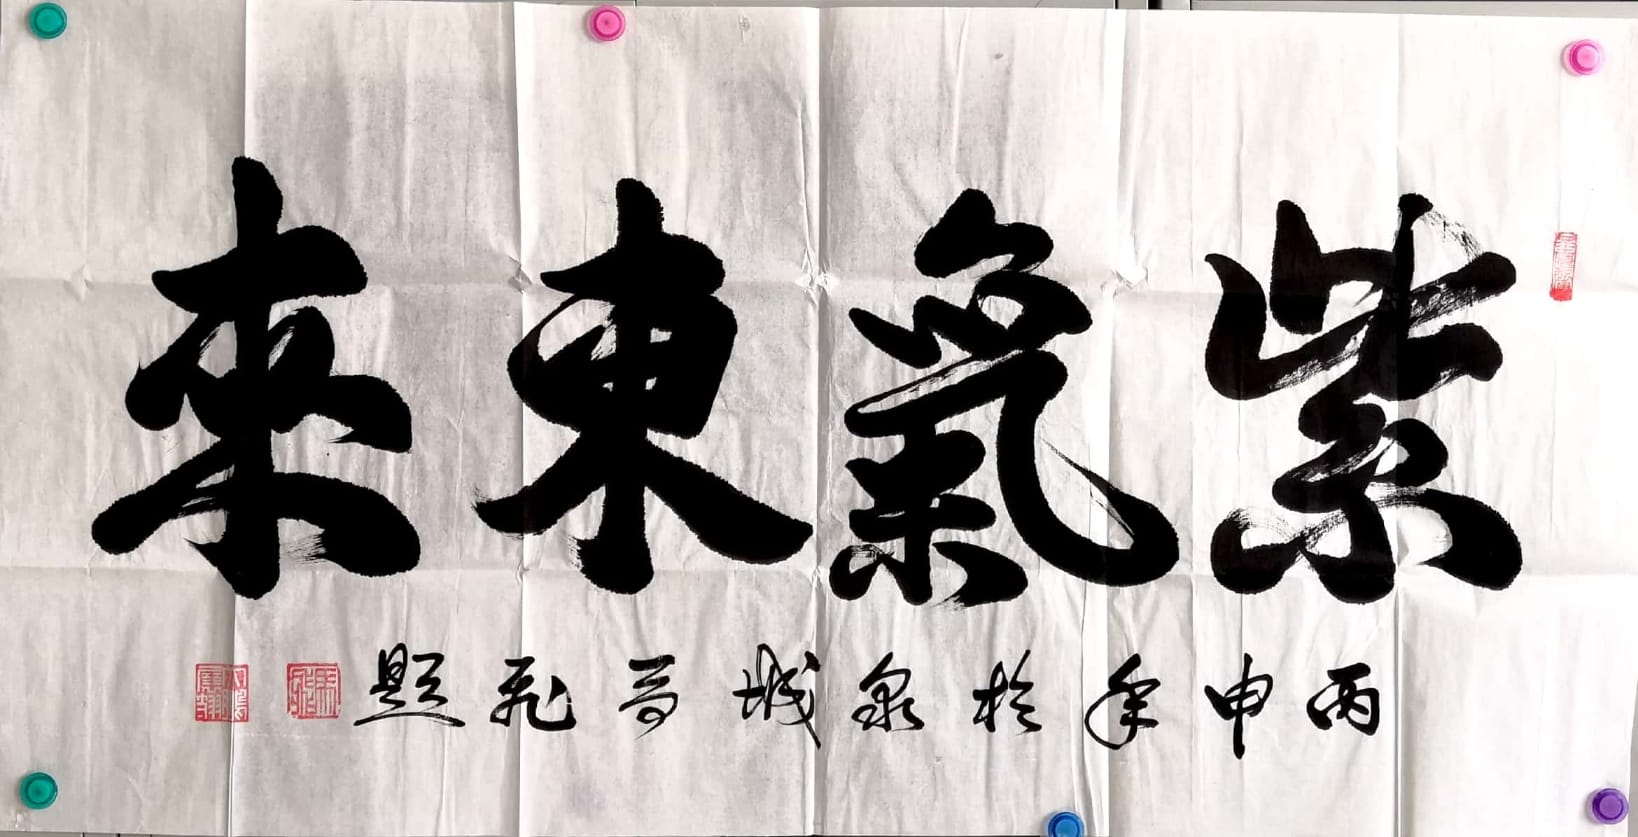 紫氣東來
丙申年於泉城马飛題